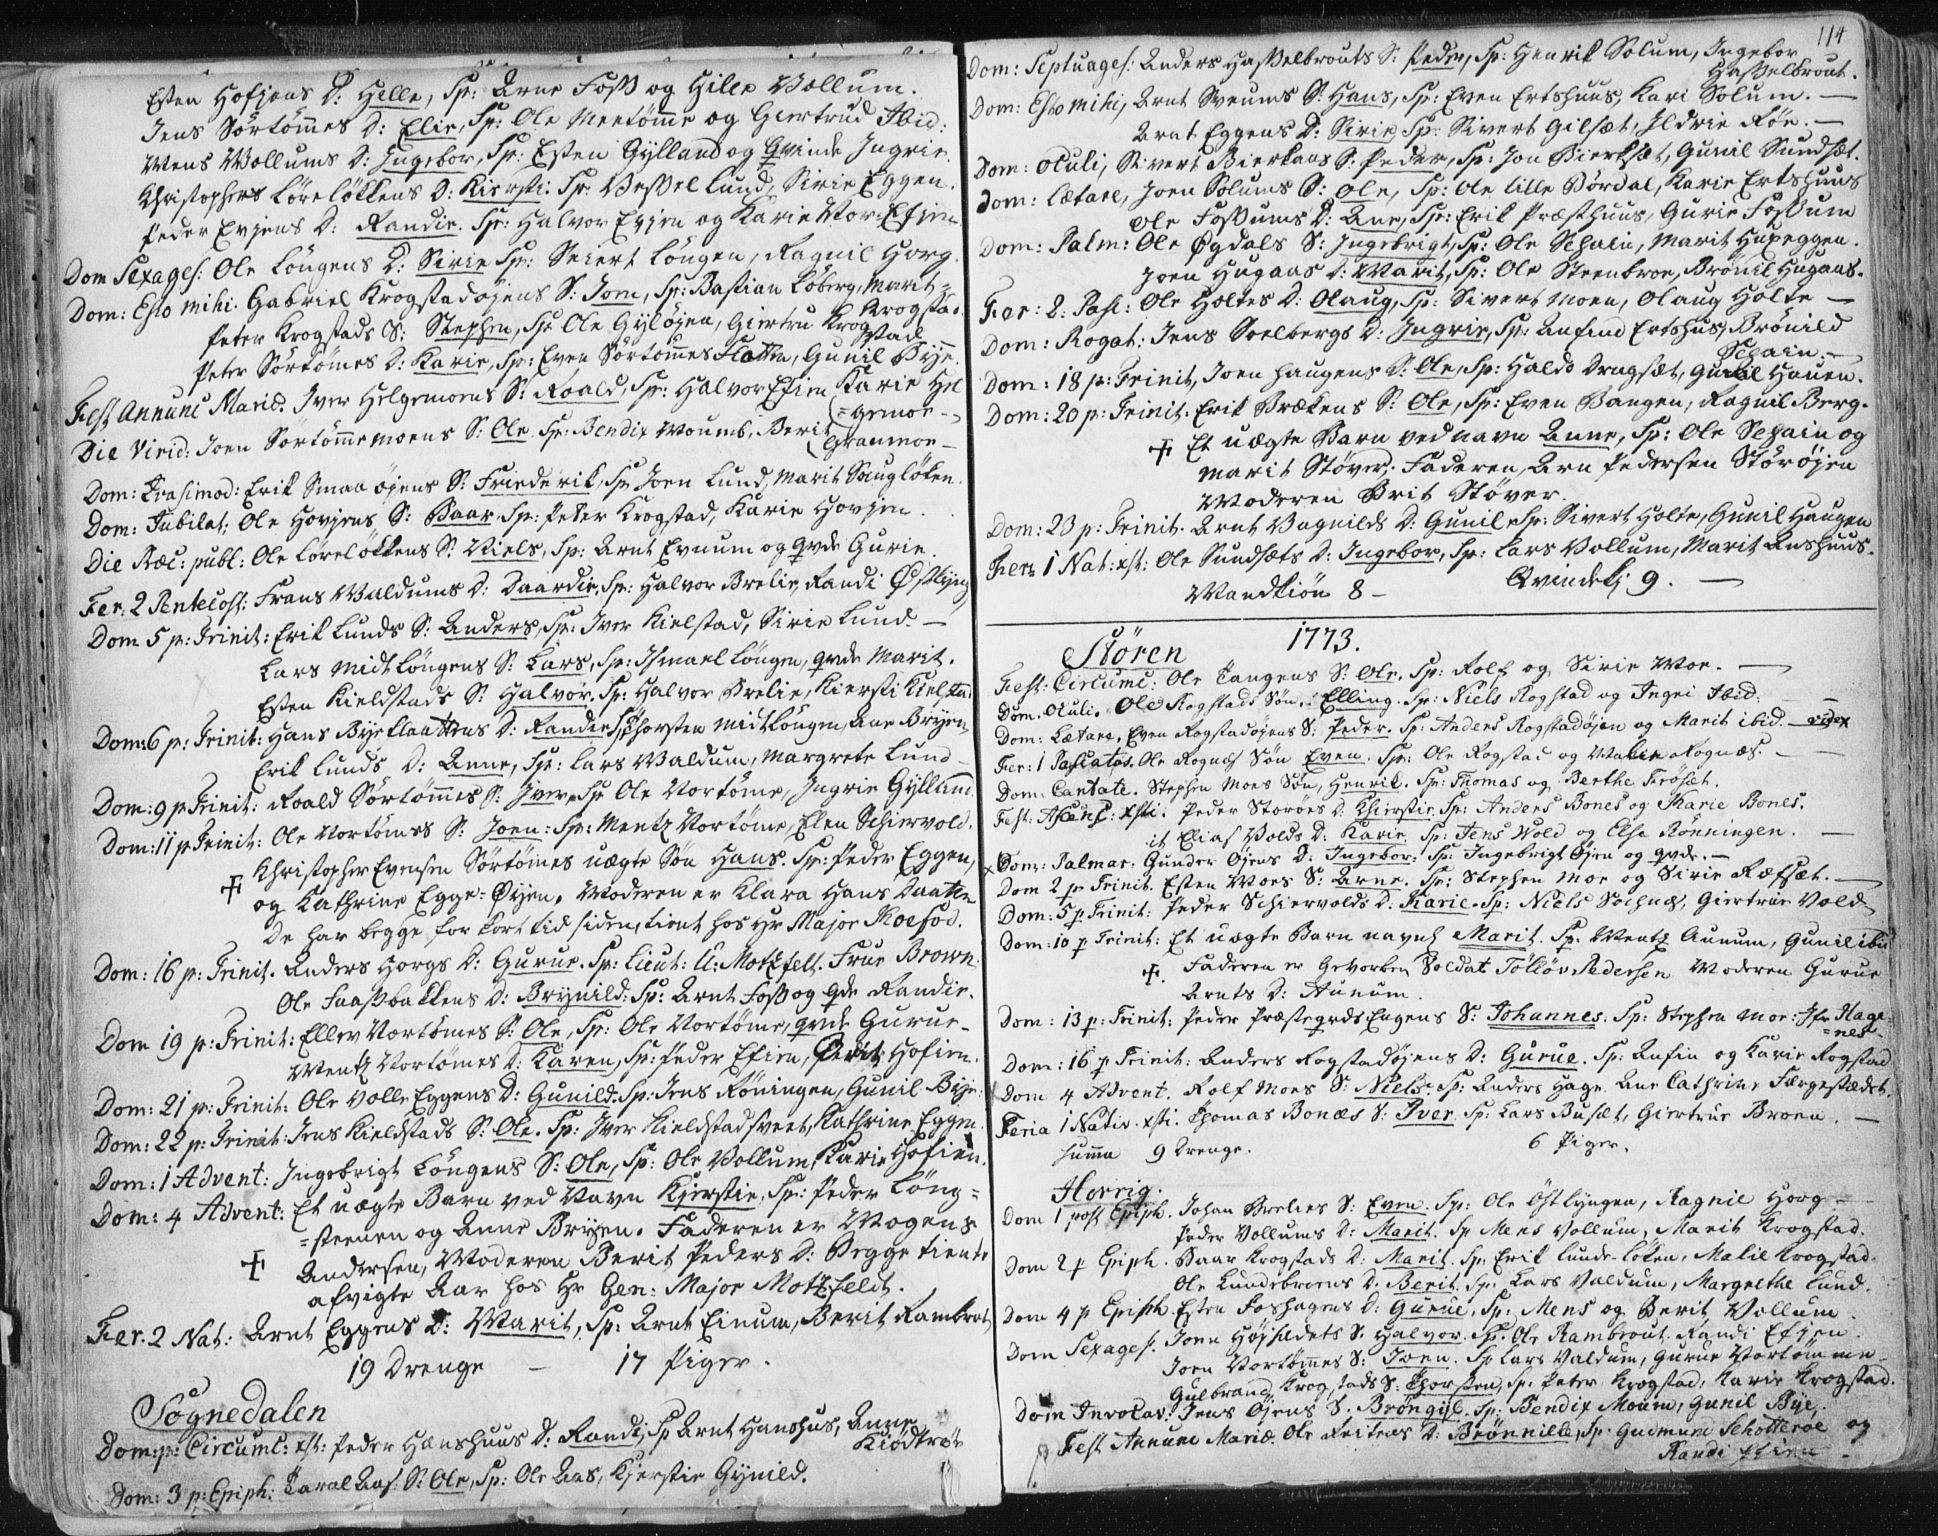 Esten Hofjens D: Hille, Sp: Arne Foss og Hille Vollum.
Jens Sörtömes D: Elie, Sp: Ole Meetömme og Giertrud Ibid:
Mens Vollums D: Ingebor, Sp: Esten Gylland og Qvinde Ingrie.
Christophers Löreløkkens D: Kiersti: Sp: Vessel Lund, Sirie Eggen.
Peder Evjens D: Randie. Sp: Halvor Evjen og Karie Efjen
Dom Sexages: Ole Löngens D: Sirie Sp: Seiert Löngen, Ragnil Horg.
Dom: Esto mihi. Gabriel Krogstadøjens S: Jom, Sp: Bastian Löberg, Marit Krogstad.
Peter Krogstads S: Stephen, Sp: Ole Gylöjen, Giertru Krogstad
Peter Sörtömes D: Karie, Sp: Even Sörtömmes Flatten, Gunil Bye.
Fest Annunc Mariæ. Iver Helgemoens S: Roald, Sp: Halvor Efien Karie Hel
=gemoe-
Die Virid: Joen Sörtömmemoens S: Ole. Sp: Bendix Moums, Berit
Granmoe-
Dom: Qvasimod: Erik Smaaøjens S: Friederik, Sp: Joen Lund, Marit Haugløken.
Dom: Jubilat: Ole Hovjens S: Baar. Sp: Peter Krogstad, Karie Hovjen.
Die Roc: publ: Ole Löreløkkens S: Niels, Sp: Arnt Evnum og qvde Gurie.
Fer: 2 Pentecost: Frans Valdums D: Daardie, Sp: Halvor Brelie, Randi Østlyng
Dom 5 p: Trinit: Erik Lunds S: Anders, Sp: Iver Kielstad, Sirie Lund —
Lars Midtlöngens S: Lars, Sp: Ismael Löngen, qvde Marit.
Esten Kieldstads S: Halvor. Sp: Halvor Brelie, Kiersti Kielstad
Dom: 6 p: Trinit: Hans Byeslaattens D: Randie, Sp: Thorsten Midtlöngen, Ane Bryen
Erik Lunds D: Anne, Sp: Lars Valdum, Margrete Lund —
Dom: 9 p Trinit: Roald Sörtömmes S: Iver, Sp: Ole Vortöme, Ingrie Gylland
Dom: 11 p Trinit: Ole Vortömes S: Joen: Sp: Mentz Vortöme, Elen Schiervold.
Christopher Evensen Sörtömes uægte Søn Hans. Sp: Peder Eggen,
og Kathrine Egge=Øyen. Moderen er Klara Hans Daatter
De har begge for kort tid siden tient hos Hr Major Moesfod.
Dom: 16 p: Trinit. Anders Horgs D: Gurue. Sp: Lieut: U: Motzfelt. Frue Brown
Ole Faassbakkens D: Brynild: Sp: Arnt Foss og qde Randie.
Dom 19 p: Trinit: Ellev Vortömes S: Ole, Sp: Ole Vortöme, qvde Gurue —
Mentz Vortömes D: Karen, Sp: Peder Efien, Berit Hofien.
Dom: 21 p: Trinit: Ole Volle Eggens D: Gunild. Sp: Jens Röningen, Gunil Bye
Dom: 22 p: Trinit: Jens Kieldstads S: Ole. Sp: Iver Kieldstadsveet, Kathrine Eggen.
Dom: 1 Advent: Ingebrigt Löngens S: Ole, Sp: Ole Vollum, Karie Hofien.
Dom: 4 Advent: Et uægte Barn ved Navn Kjerstie, Sp: Peder Löng=
=steenen og Anne Bryen. Faderen er Mogens
Andersen, Moderen Berit Peders D: Begge tiente
afvigte Aar hos Hr Gen: Major Motzfeldt.
Fer. 2 Nat: Arnt Eggens D: Marit, Sp: Arnt Einum, Berit Rambrot
19 Drenge — 17 Piger.
Sognedalen
Dom: p: Circumc: xst: Peder Hanshuus D: Randi, Sp Arnt Hanshus, Anne
Kiödtröe
Dom: 3 p: Epiph: Taral Aas S: Ole, Sp: Ole Aas, Kjerstie Gynild.
114
Dom: Septuages: Anders Hasselbrouts S: Peder, Sp: Henrik Solum, Ingebor
Hasselbrout.
Dom: Esto mihi, Arnt Sveums S: Hans, Sp: Even Ertshuus, Kari Solum. —
Arnt Eggens D: Sirie, Sp: Sivert Gilsæt, Ildrie Röe. —
Dom: Oculi, Sivert Bierkaas S: Peder, Sp: Jon Bierksæt, Gunil Sundsæt.
Dom: Lætare, Joen Solums S: Ole, Sp: Ole Lille Bördal, Karie Ertshuus
Ole Fossums D: Ane, Sp: Erik Præsthuus, Gurie Fossum
Dom: Palm: Ole Øgdals S: Ingebrigt, Sp: Ole Schein, Marit Hugeggen.
Joen Hugaas D: Marit, Sp: Ole Steenbroe, Brönil Hugaas.
Fer: 2. Pasc: Ole Holtes D: Olaug, Sp: Sivert Moen, Olaug Holte —
Dom: Rogat: Jens Soelbergs D: Ingrie, Sp: Anfind Ertshus, Brönild
Schein. —
Dom: 18 p: Trinit, Joen Haugens S: Ole, Sp: Haldo Dragsæt, Gunil Hauen.
Dom: 20 p: Trinit. Erik Brækens S: Ole, Sp: Even Bangen, Ragnil Berg.
Et uægte Barn ved navn Anne, Sp: Ole Schein og
Marit Stöver. Faderen, Arn Pedersen Störøjen
Moderen Brit Stöver.
Dom: 23 p: Trinit. Arnt Vagnilds D: Gunil, Sp: Sivert Holte, Gunil Haugen
Fer: 1 Nat: xst: Ole Sundsæts D: Ingebor, Sp: Lars Vollum, Marit Anshuus.
Mandkiön 8 — Qvindekj 9. —
Stören 1773.
Fest: Circumc: Ole Tangens S: Ole, Sp: Rolf og Sirie Moe. —
Dom. Oculi. Ole Rogstads Søn: Elling. Sp: Niels Rogstad og Ingei Ibid:
Dom: Lætare, Even Rogstadøjens S: Peder. Sp: Anders Rogstadøjen og Marit ibid. —
Fer: 1 Pascatos. Ole Rognes Søn Even. Sp: Ole Rogstad og Malie Rognæs. —
Dom: Cantate. Stephen Moes Søn, Henrik. Sp: Thomas og Berthe Frösæt.
Fest: Ascens: xsti. Peder Storöes D. Chierstie, Sp: Anders Bones og Karie Bones.
it Elias Volds D: Karie. Sp: Jens Wold og Else Rönningen. —
Dom: Palmar. Gunder Øjens D: Ingebor: Sp: Ingebrigt Øjen og qvde. —
Dom 2 p Trinit. Esten Moes S: Arne. Sp: Stephen Moe og Sirie Ræfsæt. —
Dom: 5 p Trinit: Peder Schiervolds D: Karie. Sp: Niels Sochnæs, Giertrue Vold
Dom: 10 p Trinit: Et uægte Barn navnl Marit. Sp: Mentz Aunum, Gunil ibid
Faderen er Geworben Soldat Tölløv Pedersen Moderen Gurue
Arnts D: Aunum.
Dom: 13 p: Trinit: Peder Præstegrds Engens S: Johannes. Sp: Stephen Moe. Jfr Hage
=nes
Dom: 16 p Trinit: Anders Rogstadøjens D: Gurue. Sp: Anfin og Karie Rogstad
Dom 4 Advent. Rolf Moes S: Niels. Sp: Anders Hage. Ane Cathrine Færgestædet.
Feria 1 Nativ. xsti. Thomas Bonæs S: Iver. Sp: Lars Busæt, Giertrue Broen. —
Summa 9 Drenge. 6 Piger.
Horrig.
Dom 1 post Epiph. Johan Brelies S: Even. Sp: Ole Östlyngen, Ragnil Horg —
Peder Vollums D: Marit. Sp Mens Vollum, Marit Krogstad.
Dom 2 p Epiph. Baar Krogstads D: Marit. Sp: Erik Lundeløken, Malie Krogstad.
Ole Lundebroens D: Berit. Sp: Lars Valdum, Margrethe Lund.
Dom 4 p Epiph. Esten Foshagens D: Gurue, Sp: Mens og Berit Vollum.
Dom Sexages. Joen Høysledets S. Halvor. Sp. Ole Rambrout. Randi Efjen.
Joen Vortömmes S: Joen. Sp Lars Valdum, Gurue Vortömme
Gulbrand Krogstads S: Thorsten, Sp: Peter Krogstad, Karie Krogstad.
Dom Invocav: Jens Øjens D. Bröngil. Sp: Bendix Moum, Gunil Bye.
Fest Annunc Mariæ. Ole Reitens D: Brönnille, Sp: Gudmund Schotteröe og
Randi Efien